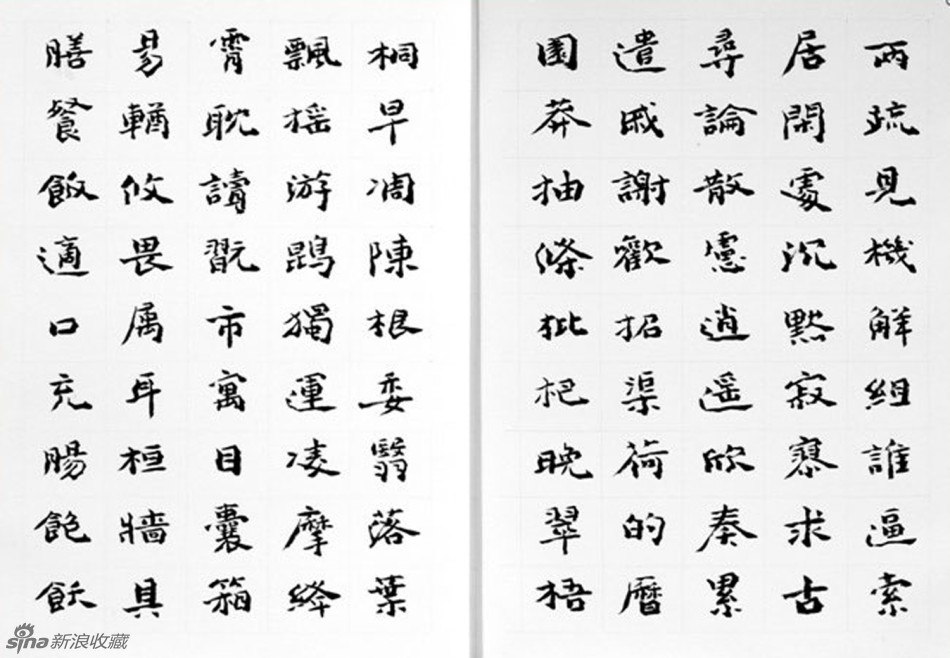 兩疏見機解組誰逼索
居閑處沉默寂寥求古
尋論散慮逍遥欣奏累
遣慼謝歡招渠荷的曆
園莽抽條枇杷晚翠梧
桐早凋陳根委翳落葉
飄摇游鵾獨運凌摩絳
霄耽讀翫市寓目囊箱
易輶攸畏属耳桓牆具
膳餐飯適口充腸飽飫
sina新浪收藏